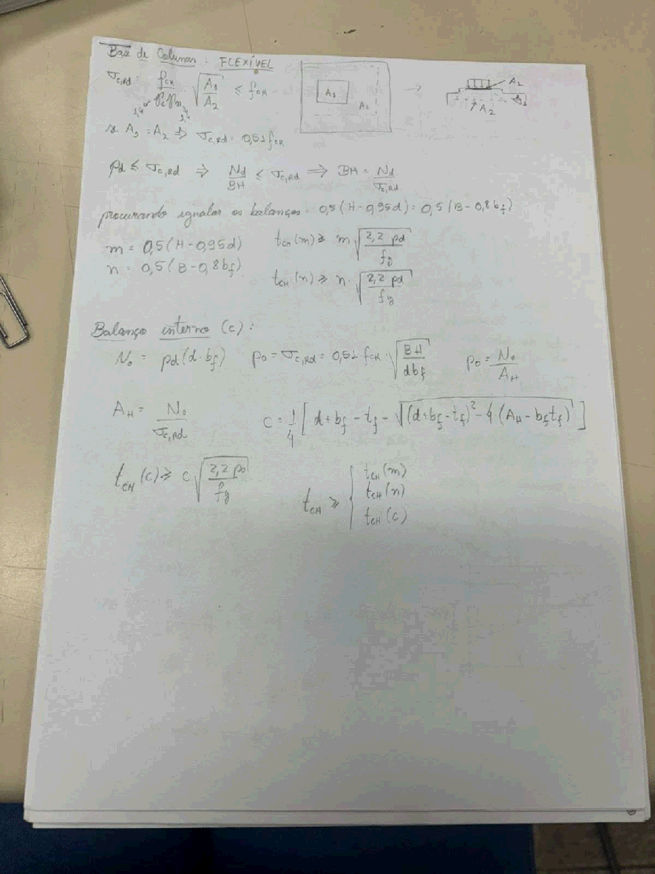 Base de Colunas: FLEXÍVEL
σc,Rd = fck / (γc γn) √(A2/A1) ≤ fck
1,4 1,4
A1 A2
A1 A2
se A1 = A2 ⇒ σc,Rd = 0,51 fck
pd ≤ σc,Rd ⇒ Nd/BH ≤ σc,Rd ⇒ BH = Nd/σc,Rd
procurando igualar os balanços: 0,5(H-0,95d) = 0,5(B-0,8bf)
m = 0,5(H-0,95d) tCH(m) ≥ m √(2,2 pd / fy)
n = 0,5(B-0,8bf) tCH(n) ≥ n √(2,2 pd / fy)
Balanço interno (c):
No = pd(d·bf) po = σc,Rd = 0,51 fck · √(BH / dbf) po = No/AH
AH = No/σc,Rd c = 1/4 [d+bf - tf - √((d+bf-tf)² - 4(AH - bftf))]
tCH(c) ≥ c √(2,2 po / fy) tCH ≥ { tCH(m)
tCH(n)
tCH(c)